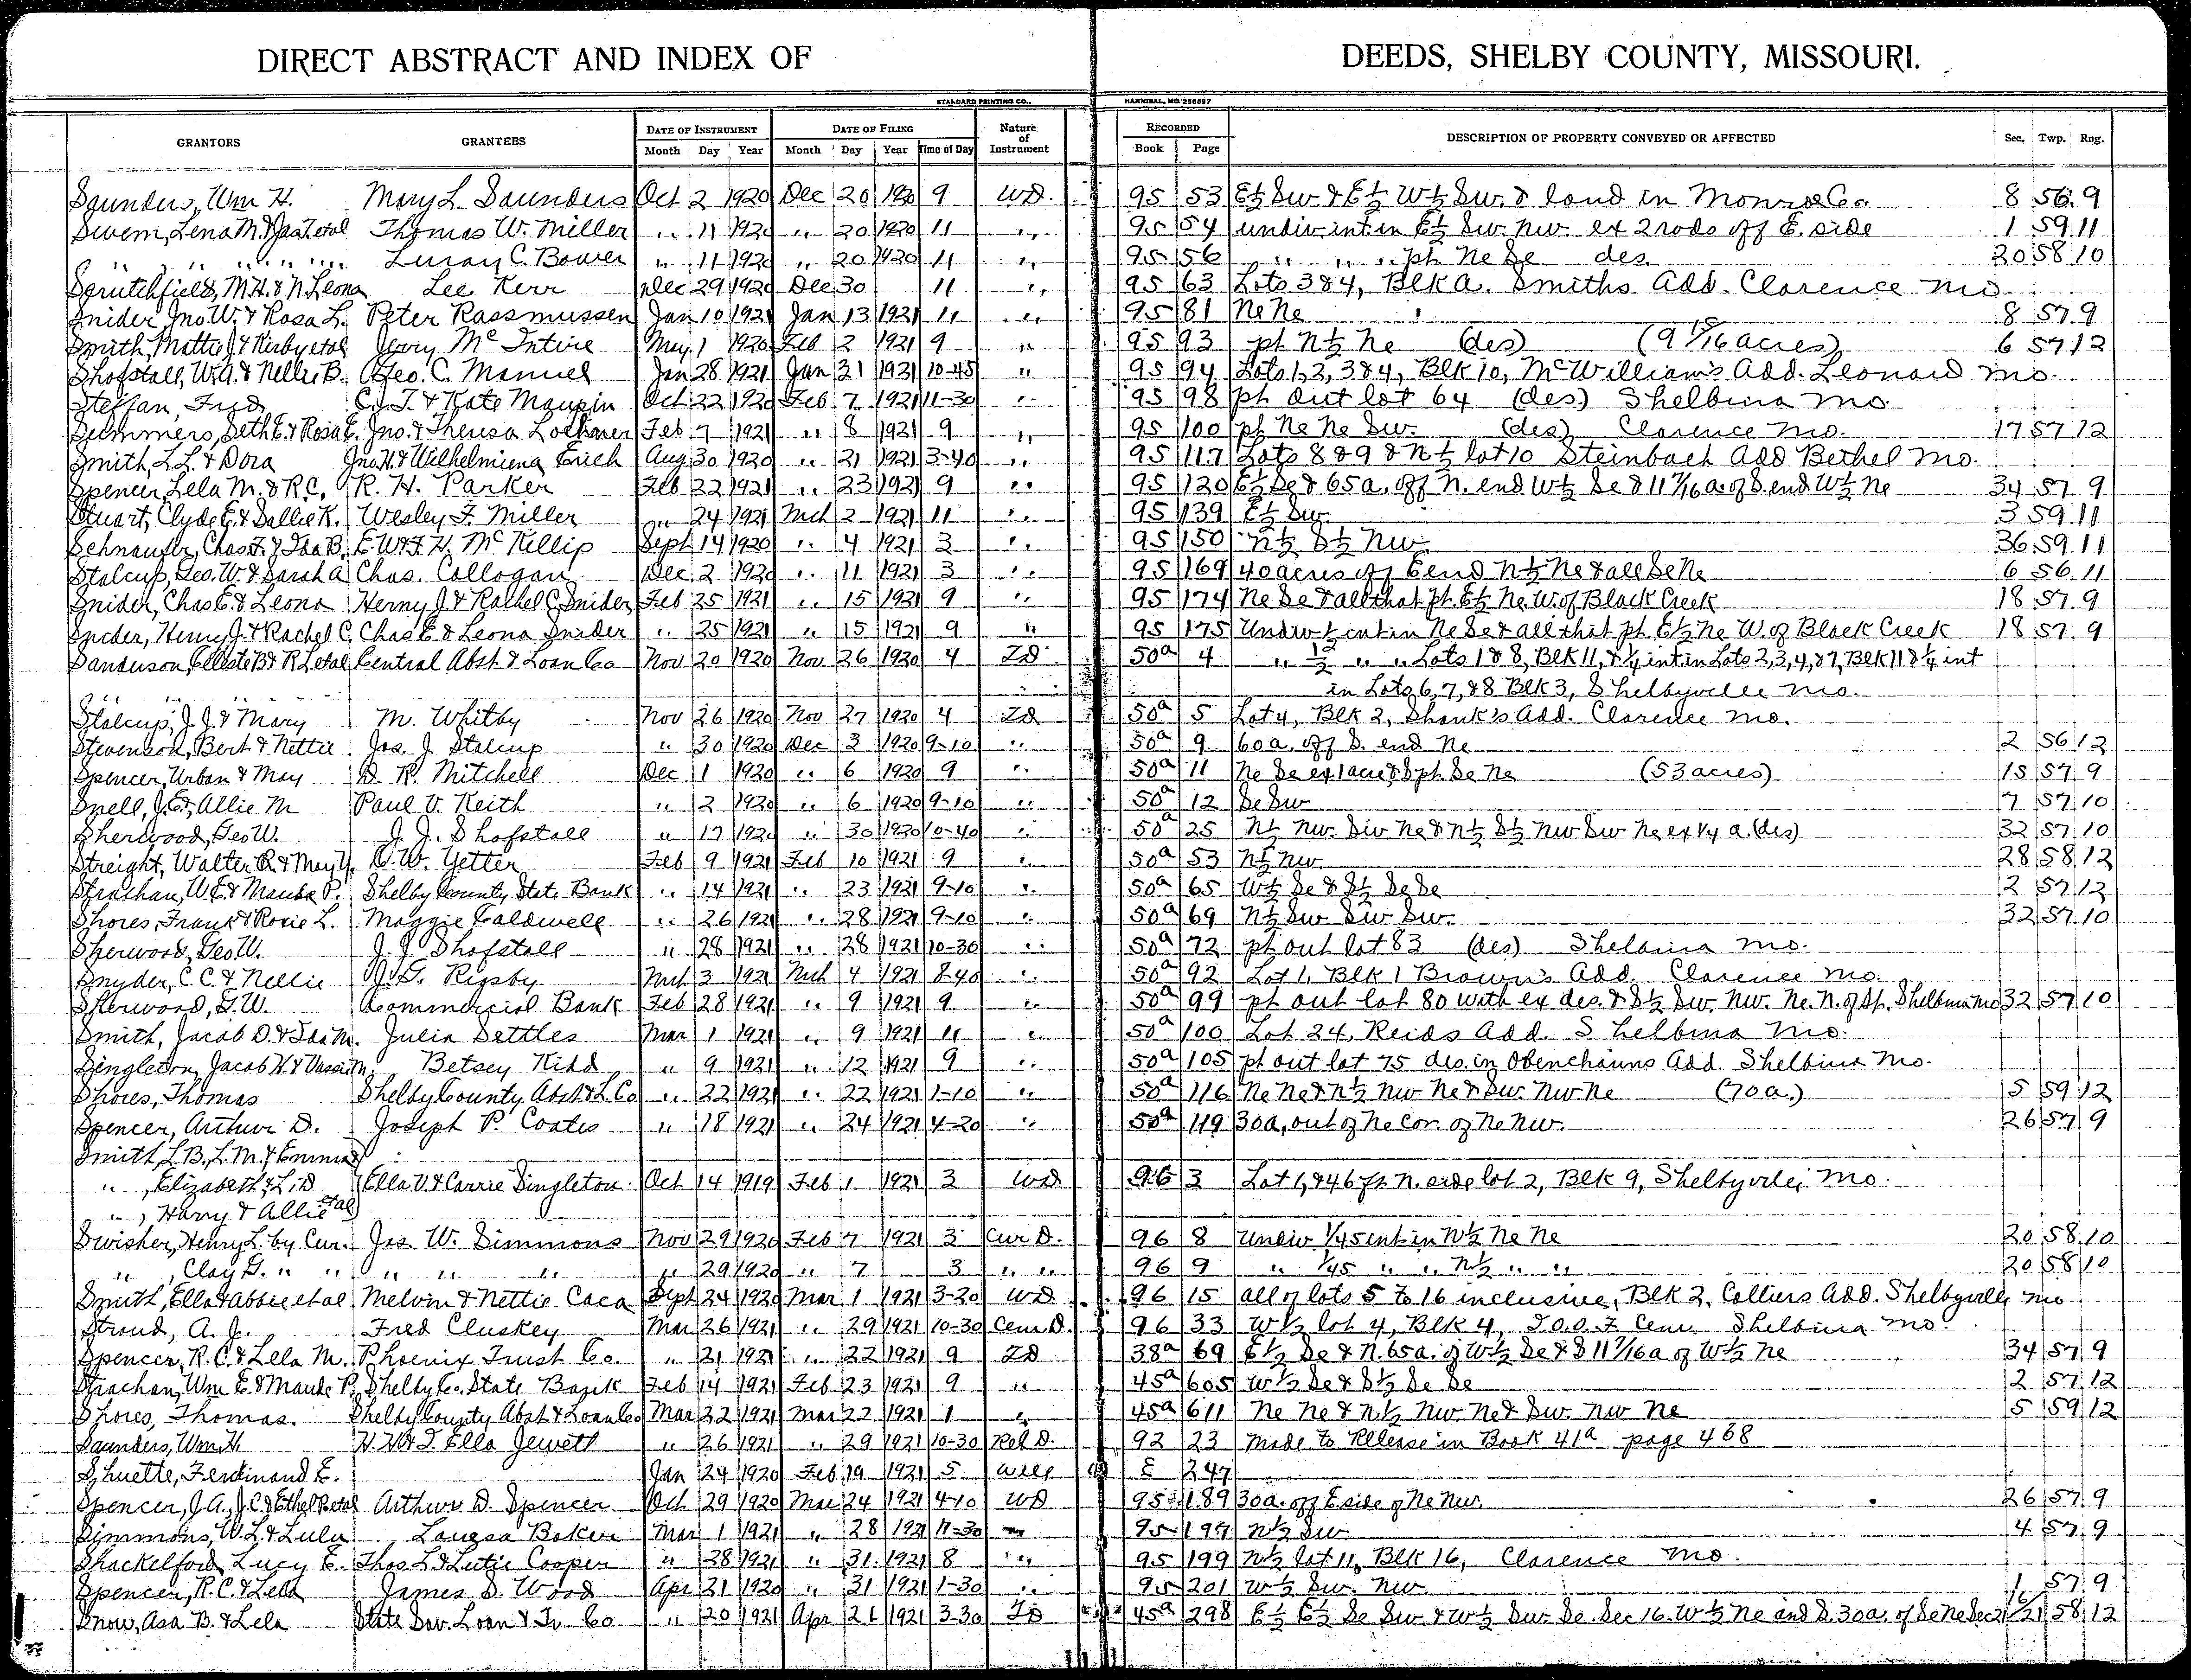 DIRECT ABSTRACT AND INDEX OF DEEDS, SHELBY COUNTY, MISSOURI.
STANDARD PRINTING CO., HANNIBAL, MO. 256597
GRANTORS GRANTEES DATE OF INSTRUMENT DATE OF FILING Nature of Instrument RECORDED DESCRIPTION OF PROPERTY CONVEYED OR AFFECTED Sec. Twp. Rng.
Month Day Year Month Day Year Time of Day Book Page
Saunders, Wm H. Mary L. Saunders Oct 2 1920 Dec 20 1920 9 WD. 95 53 E½ Sw & E½ W½ Sw. & land in Monroe Co. 8 56 9
Swem, Lena M. & Jas T. etal Thomas W. Miller " 11 1920 " 20 1920 11 " 95 54 undiv. int in E½ Sw. Nw. ex 2 rods off E. side 1 59 11
" " " " " Luray C. Bower " 11 1920 " 20 1920 11 " 95 56 " " " pt Ne Se des. 20 58 10
Scrutchfield, M.H. & N. Leona Lee Kerr Dec 29 1920 Dec 30 11 " 95 63 Lots 3 & 4, Blk A. Smiths Add. Clarence Mo.
Snider, Jno. W. & Rosa L. Peter Rassmussen Jan 10 1921 Jan 13 1921 11 " 95 81 Ne Ne 8 57 9
Smith, Mattie J. & Kirby etal Jerry McIntire May 1 1920 Feb 2 1921 9 " 95 93 pt N½ Ne (des) (9 15/16 acres) 6 57 12
Shofstall, W.A. & Nellie B. Geo. C. Manuel Jan 28 1921 Jan 31 1921 10-45 " 95 94 Lots 1, 2, 3 & 4, Blk 10, McWilliam's Add. Leonard Mo.
Steffan, Fred C.J.T. & Kate Maupin Oct 22 1920 Feb 7 1921 11-30 " 95 98 pt out lot 64 (des) Shelbina Mo.
Summers, Seth E. & Rosa E. Jno. & Theresa Lochner Feb 7 1921 " 8 1921 9 " 95 100 pt Ne Ne Sw. (des) Clarence Mo. 17 57 12
Smith, L.L. & Dora Jno. H. & Wilhelmiena Erich Aug 30 1920 " 21 1921 3-40 " 95 117 Lots 8 & 9 & N½ lot 10 Steinbach Add Bethel Mo.
Spencer, Lela M. & R.C. R. H. Parker Feb 22 1921 " 23 1921 9 " 95 120 E½ Se & 65a. off N. end W½ Se & 11 7/16 a. of S. end W½ Ne 34 57 9
Stuart, Clyde E. & Sallie K. Wesley F. Miller " 24 1921 Mch 2 1921 11 " 95 139 E½ Sw 3 59 11
Schnaufer, Chas. F. & Ida B. E.W. & F.H. McKillip Sept 14 1920 " 4 1921 3 " 95 150 N½ S½ Nw 36 59 11
Stalcup, Geo. W. & Sarah A Chas. Collogan Dec 2 1920 " 11 1921 3 " 95 169 40 acres off E end N½ Ne & all Se Ne 6 56 11
Snider, Chas E. & Leona Henry J. & Rachel C. Snider Feb 25 1921 " 15 1921 9 " 95 174 Ne Se & all that pt. E½ Ne W. of Black Creek 18 57 9
Snider, Henry J. & Rachel C. Chas E. & Leona Snider " 25 1921 " 15 1921 9 " 95 175 Undiv ½ int in Ne Se & all that pt E½ Ne W. of Black Creek 18 57 9
Sanduson, Celeste B & R.L. etal Central Abst & Loan Co Nov 20 1920 Nov 26 1920 4 TD 50a 4 " ½ " " Lots 1 & 8, Blk 11, & ¼ int in Lots 2, 3, 4, & 7, Blk 11 & ¼ int
" " in Lots 6, 7, & 8 Blk 3, Shelbyville Mo.
Stalcup, J.J. & Mary M. Whitby Nov 26 1920 Nov 27 1920 4 TD 50a 5 Lot 4, Blk 2, Shank's Add. Clarence Mo.
Stevenson, Bert & Nettie Jas. J. Stalcup " 30 1920 Dec 3 1920 9-10 " 50a 9 60 a. off S. end Ne 2 56 12
Spencer, Urban & May D. R. Mitchell Dec 1 1920 " 6 1920 9 " 50a 11 Ne Se ex 1 acre & S pt. Se Ne (53 acres) 15 57 9
Snell, J.E., Allie M Paul V. Keith " 2 1920 " 6 1920 9-10 " 50a 12 Se Sw 7 57 10
Sherwood, Geo W. J. J. Shofstall " 17 1920 " 30 1920 10-40 " 50a 25 N½ Nw. Sw Ne & N½ S½ Nw Sw Ne ex ¼ a. (des) 32 57 10
Streight, Walter R. & May Y. O.W. Yetter Feb 9 1921 Feb 10 1921 9 " 50a 53 N½ Nw 28 58 12
Strachan, W.E. & Maude P. Shelby County State Bank " 14 1921 " 23 1921 9-10 " 50a 65 W½ Se & S½ Se Se 2 57 12
Shores, Frank & Rosie L. Maggie Caldwell " 26 1921 " 28 1921 9-10 " 50a 69 N½ Sw Sw Sw. 32 57 10
Sherwood, Geo. W. J. J. Shofstall " 28 1921 " 28 1921 10-30 " 50a 72 pt out lot 83 (des) Shelbina Mo.
Snyder, C.C. & Nellie J.G. Rigsby Mch 3 1921 Mch 4 1921 8-40 " 50a 92 Lot 1, Blk 1 Brown's Add. Clarence Mo.
Sherwood, G.W. Commercial Bank Feb 28 1921 " 9 1921 9 " 50a 99 pt out lot 80 with ex des. & S½ Sw. Nw. Ne. N. of St. Shelbina Mo 32 57 10
Smith, Jacob D. & Ida M. Julia Settles Mar 1 1921 " 9 1921 11 " 50a 100 Lot 24, Reids Add. Shelbina Mo.
Singleton, Jacob H. & Vassie M. Betsey Kidd " 9 1921 " 12 1921 9 " 50a 105 pt out lot 75 des. in Obenchauns Add. Shelbina Mo.
Shores, Thomas Shelby County Abst & L. Co " 22 1921 " 22 1921 1-10 " 50a 116 Ne Ne & N½ Nw Ne & Sw. Nw Ne (70 a.) 5 59 12
Spencer, Arthur D. Joseph P. Coates " 18 1921 " 24 1921 4-20 " 50a 119 30a, out of Ne Cor. of Ne Nw. 26 57 9
Smith, L.B., L.M. & Emma
" , Elizabeth & L.D Ella V. & Carrie Singleton Oct 14 1919 Feb 1 1921 3 WD 96 3 Lot 1, & 46 ft N. side lot 2, Blk 9, Shelbyville, Mo.
" , Harry & Allie etal
Swisher, Henry L. by Cur. Jas. W. Simmons Nov 29 1920 Feb 7 1921 3 Cur D. 96 8 Undiv 1/45 int in N½ Ne Ne 20 58 10
" , Clay G. " " " " " " 29 1920 " 7 3 " " 96 9 " 1/45 " " N½ " " 20 58 10
Smith, Ella & Abbie et al Melvin & Nettie Caca Sept 24 1920 Mar 1 1921 3-20 WD 96 15 all of lots 5 to 16 inclusive, Blk 2, Colliers Add. Shelbyville, Mo
Stroud, A. J. Fred Cluskey Mar 26 1921 " 29 1921 10-30 Cem D. 96 33 W½ lot 4, Blk 4, I.O.O.F. Cem. Shelbina Mo.
Spencer, R.C. & Lela M. Phoenix Trust Co. " 21 1921 " 22 1921 9 TD 38a 69 E½ Se & N. 65a. of W½ Se & S 11 7/16 a of W½ Ne 34 57 9
Strachan, Wm E. & Maude P. Shelby Co. State Bank Feb 14 1921 Feb 23 1921 9 " 45a 605 W½ Se & S½ Se Se 2 57 12
Shores, Thomas. Shelby County Abst & Loan Co Mar 22 1921 Mar 22 1921 1 " 45a 611 Ne Ne & N½ Nw. Ne & Sw. Nw Ne 5 59 12
Saunders, Wm H. H.H. & T. Ella Jewett " 26 1921 " 29 1921 10-30 Rel D. 92 23 Made to Release in Book 41a page 468
Shuette, Ferdinand E. Jan 24 1920 Feb 19 1921 5 Will E 247
Spencer, J.A., J.C. & Ethel P. etal Arthur D. Spencer Oct 29 1920 Mar 24 1921 4-10 WD 95 189 30a. off E side of Ne Nw. 26 57 9
Simmons, W.L. & Lulu Louesa Baker Mar 1 1921 " 28 1921 11-30 " 95 197 N½ Sw 4 57 9
Shackelford, Lucy E. Thos L. & Lutie Cooper " 28 1921 " 31 1921 8 " 95 199 N½ lot 11, Blk 16, Clarence Mo.
Spencer, R.C. & Lela James S. Wood Apr 21 1920 " 31 1921 1-30 " 95 201 W½ Sw. Nw 1 57 9
Snow, Asa B. & Lela State Sav. Loan & Tr. Co " 20 1921 Apr 21 1921 3-30 TD 45a 298 E½ E½ Se Sw & W½ Sw. Se. Sec 16. W½ Ne and S. 30a. of Se Ne Sec 21 16/21 58 12